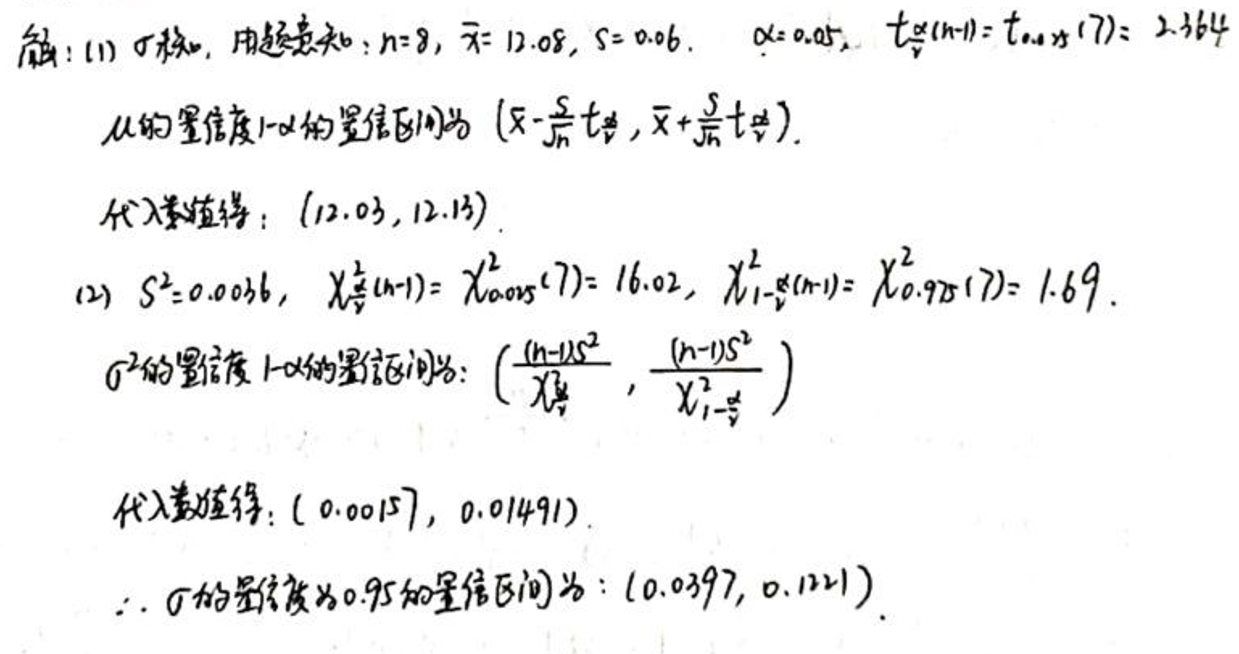 解:(1) σ未知, 由题意知: n=8, x̄=12.08, S=0.06. α=0.05, t_{α/2}(n-1)=t_{0.025}(7)=2.364
μ的置信度1-α的置信区间为 (x̄-S/√n t_{α/2}, x̄+S/√n t_{α/2}).
代入数值得: (12.03, 12.13).
(2) S²=0.0036, χ²_{α/2}(n-1)=χ²_{0.025}(7)=16.02, χ²_{1-α/2}(n-1)=χ²_{0.975}(7)=1.69.
σ²的置信度1-α的置信区间为: ((n-1)S²/χ²_{α/2}, (n-1)S²/χ²_{1-α/2})
代入数值得: (0.00157, 0.01491).
∴ σ的置信度为0.95的置信区间为: (0.0397, 0.1221).